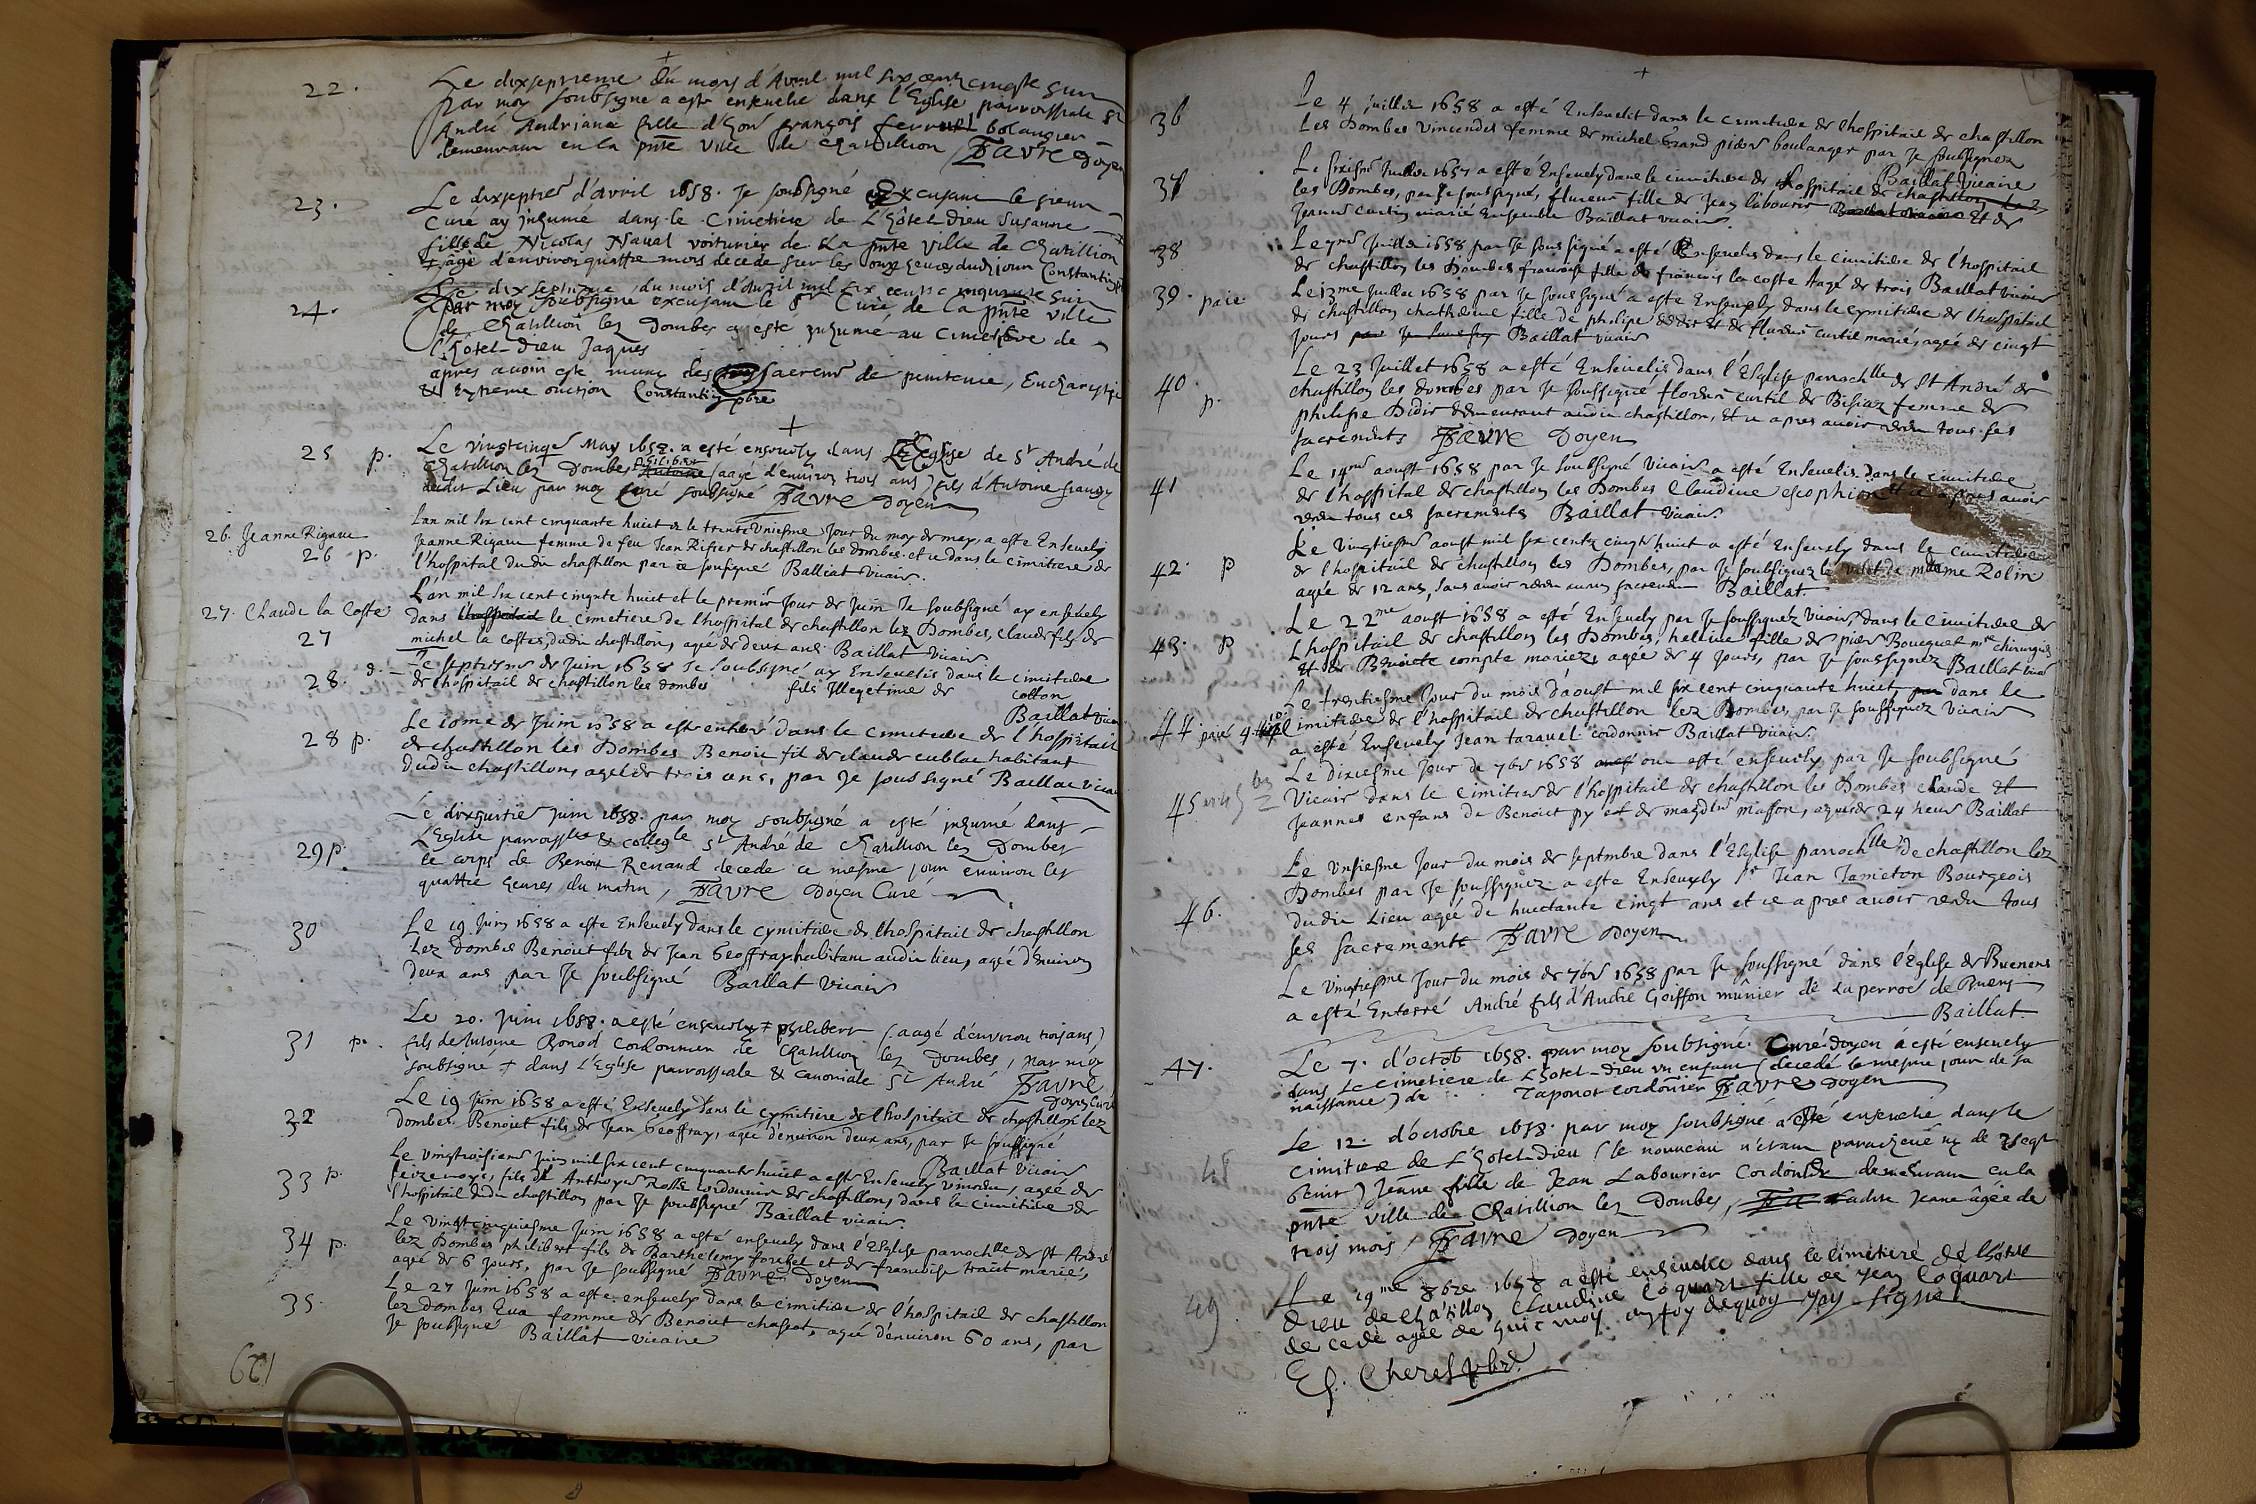 +
22.
Le dixseptieme du moys d'Avril mil six cent cinqte huit
par moy soubsigne a esté enseuelie dans l'Eglise parrossiale St
André Andriane fille d'hon françois boulangier
demeurant en la pnte ville de Chatillion FAVRE Doyen
23.
Le dixseptie d'avril 1658. Je soubsigné Excusant le sieur
Curé ay inhumé dans le Cimetiere de L'hôtel-Dieu Susanne
fille de Nicolas Naual voiturier de La pnte ville de Chatillion
âgé d'environ quattre mois decede sur les onze heures dudi jour Constantin
24.
Le dix septieme du mois d'avril mil six cent cinquante huit
par moy soubsigné excusant le Sr Curé de La pnte ville
de Chatillion lez Dombes a esté inhumé au Cimetiere de
l'hôtel-Dieu Jaques
apres avoir esté muny des sacremt de penitence, Eucharistie
& Extreme onction Constantin pbre
+
25 p.
Le vingtcinqe May 1658. a esté enseuely dans L'Eglise de St André de
Chatillion lez Dombes Philibert Antoine (aagé d'environ trois ans) fils d'Antoine
dudit Lieu par moy Curé soubsigné FAVRE Doyen
26. Jeanne Rigaut
26 p.
Lan mil six cent cinquante huict & le trente uniesme Jour du moy de may, a este Enseuely
Jeanne Rigaut femme de feu Jean de chastillon les dombes et ce dans le cimitiere de
l'hospital dudit chastillon par ce sousigné Balliat vicair.
27. Claude la Coste
27
L'an mil six cent cinqnte huict et le premier Jour de Juin Je soubsigné ay enseuely
dans l'hospitail le cimetiere de l'hospital de chastillon lez Dombes, claude fils de
michel la coste, dudit chastillon, agé de deux ans Baillat vicair
28. d.
Le septiesme de Juin 1658 Je soubsigné ay Enseuelis dans le cimitiere
de l'hospitail de chastillon les dombes fils Illegetime de cotton
Baillat vicair
28 p.
Le 10me de Juin 1658 a este enterre dans le cimitiere de l'hospitail
de chastillon les Dombes Benoit fil de claude habitant
dudit chastillons agé de trois ans, par Je soussigné Baillat vicair
29 p.
Le dixhuittie juin 1658. par moy soubsigné a esté inhumé dans
L'Eglise parroissle & collegle St André de Chatillion lez Dombes
le corps de Benoit Renaud decede ce mesme jour environ les
quattre heures du matin, FAVRE Doyen Curé
30
Le 19 Juin 1658 a este Enseuely dans le cymitiere de l'hospitail de chastillon
lez Dombes Benoit fils de Jean Geoffray habitant audit lieu, agé d'environ
deux ans par Je soubsigné Baillat vicair
31 p.
Le 20. Juin 1658. a esté enseuely + philibert (aagé d'environ trois ans)
fils de Antoine Bonod Cordonnier de Chatillion lez Dombes, par moy
soubsigné + dans l'Eglise parroissiale & canoniale St André FAVRE
Doyen Curé
32
Le 19 Juin 1658 a esté Enseuely dans le cymitiere de l'hospitail de chastillon lez
dombes Benoit fils de Jean Geoffray, agé d'environ deux ans, par Je soussigné
Baillat vicair
33 p.
Le vingtroisieme Juin mil six cent cinquante huict a este Enseuely, agé de
seize moys, fils de Anthoyne cordonnier de chastillons, dans le cimitiere de
l'hospitail dudit chastillon par Je soubsigné Baillat vicair.
34 p.
Le vingtcinquiesme Juin 1658 a esté enseuely dans l'Eglise parochlle de St André
lez Dombes philibert fils de Barthelemy et de francoise mariés,
agé de 6 jours, par Je soubsigné FAVRE Doyen
35.
Le 27 Juin 1658 a este enseuely dans le cimitiere de l'hospitail de chastillon
lez dombes Eua femme de Benoit chaseot, agée d'environ 60 ans, par
Je soubsigné Baillat vicaire
+
36
Le 4 Juillet 1658 a esté Enseuelit dans le cimitiere de l'hospitail de chastillon
les Dombes vincende femme de michel Grand boulanger par Je soubsignez
Baillat vicaire
37
Le sixiesme Juillet 1657 a esté Enseuely dans le cimitiere de l'hospitail de chastillon
les Dombes, par Je soussigné, fleurie fille de Jean labourier Et de
Jeanne curtin mariés Ensemble Baillat vicair.
38
Le 7me Juillet 1658 par Je soussigné a esté Enseuelis dans le cimitiere de l'hospitail
de chastillon les Dombes francoise fille de francois la coste Aagé de trois Baillat vicair
39. paie
Le 12me Juillet 1658 par Je soussigné a este Enseuely dans le cymitiere de l'hospitail
de chastillon chatherine fille de philipe didit & de curtil mariés, agée de cinqt
jours par Je soussig Baillat vicair
40. p.
Le 23 Juillet 1658 a esté Enseuelis dans l'Esglise parrochlle de St André de
chastillon les dombes par Je soussigné curtil de Bisiaz femme de
philipe Didir demeurant audit chastillon, Et ce apres auoir tous ses
sacrements FAVRE Doyen
41
Le 14me aoust 1658 par Je soubsigné vicair a esté Enseuelis dans le cimitiere
de l'hospital de chastillon les Dombes Claudine escophier Et ce apres auoir
rendu tous ces sacrements Baillat vicair.
42. p
Le vingtiesme aoust mil six centz cinqte huict a esté Enseuely dans le cimitiere
de l'hospitail de chastillon les Dombes, par Je soubsignez le valet de mdme Rolin
agée de 12 ans, sans auoir rendu aucun sacrement Baillat
43. p
Le 22me aoust 1658 a esté Enseuely par Je soussignez vicair, dans le cimitiere de
l'hospitail de chastillon les Dombes, helaine fille de pierre Bouquet me chirurgien
Et de Benoiste compte mariez, agée de 4 Jours, par Je soussignez Baillat vicair
44 paié
Le trentiesme Jour du mois d'aoust mil six cent cinquante huict, dans le
cimitiere de l'hospitail de chastillon lez Dombes, par Je soussignez vicair
a esté Enseuely Jean tarauel cordonnir Baillat vicair.
45
Le dixiesme Jour de 7bre 1658 ont esté enseuely par Je soubsigné
vicair dans le cimitiere de l'hospitail de chastillon les Dombes claude Et
Jeannes enfans de Benoict py et de masson, agés de 24 heur Baillat
46.
Le Unsiesme Jour du mois de septembre dans l'Esglise parrochlle de chastillon lez
Dombes par Je soussignez a este Enseuely Sr Jean Janieton Bourgeois
dudit Lieu agé de huictante cinqt ans et ce apres auoir rendu tous
ses sacrements FAVRE Doyen
Le vingtiesme Jour du mois de 7bre 1658 par Je soussigné dans l'Eglise de Buenens
a esté Enterré André fils d'André Goiffon mûnier de
Baillat
47.
Le 7. d'octob 1658. par moy soubsigné Curé Doyen a esté enseuely
dans le cimetiere de L'hotel-Dieu un enfant (decedé le mesme jour de sa
naissance) de . . Taponot cordonnier FAVRE Doyen
48
Le 12. d'octobre 1658. par moy soubsigné a esté enseuelie dans le
cimitiere de L'hotel-Dieu (le nouveau n'etant parachevé ny
benit) Jeane fille de Jean Labourier Cordonnier demeurant en la
pnte ville de Chatillion lez Dombes, ladite Jeane âgée de
trois mois, FAVRE Doyen
49
Le 19me 8bre 1658 a esté enseuelie dans le Cimetiere de l'hôtel
Dieu de Chatillon Claudine Coquart fille de Jean Coquart
decede agée de huit moy en foy dequoy jay signé
Cherel pbre